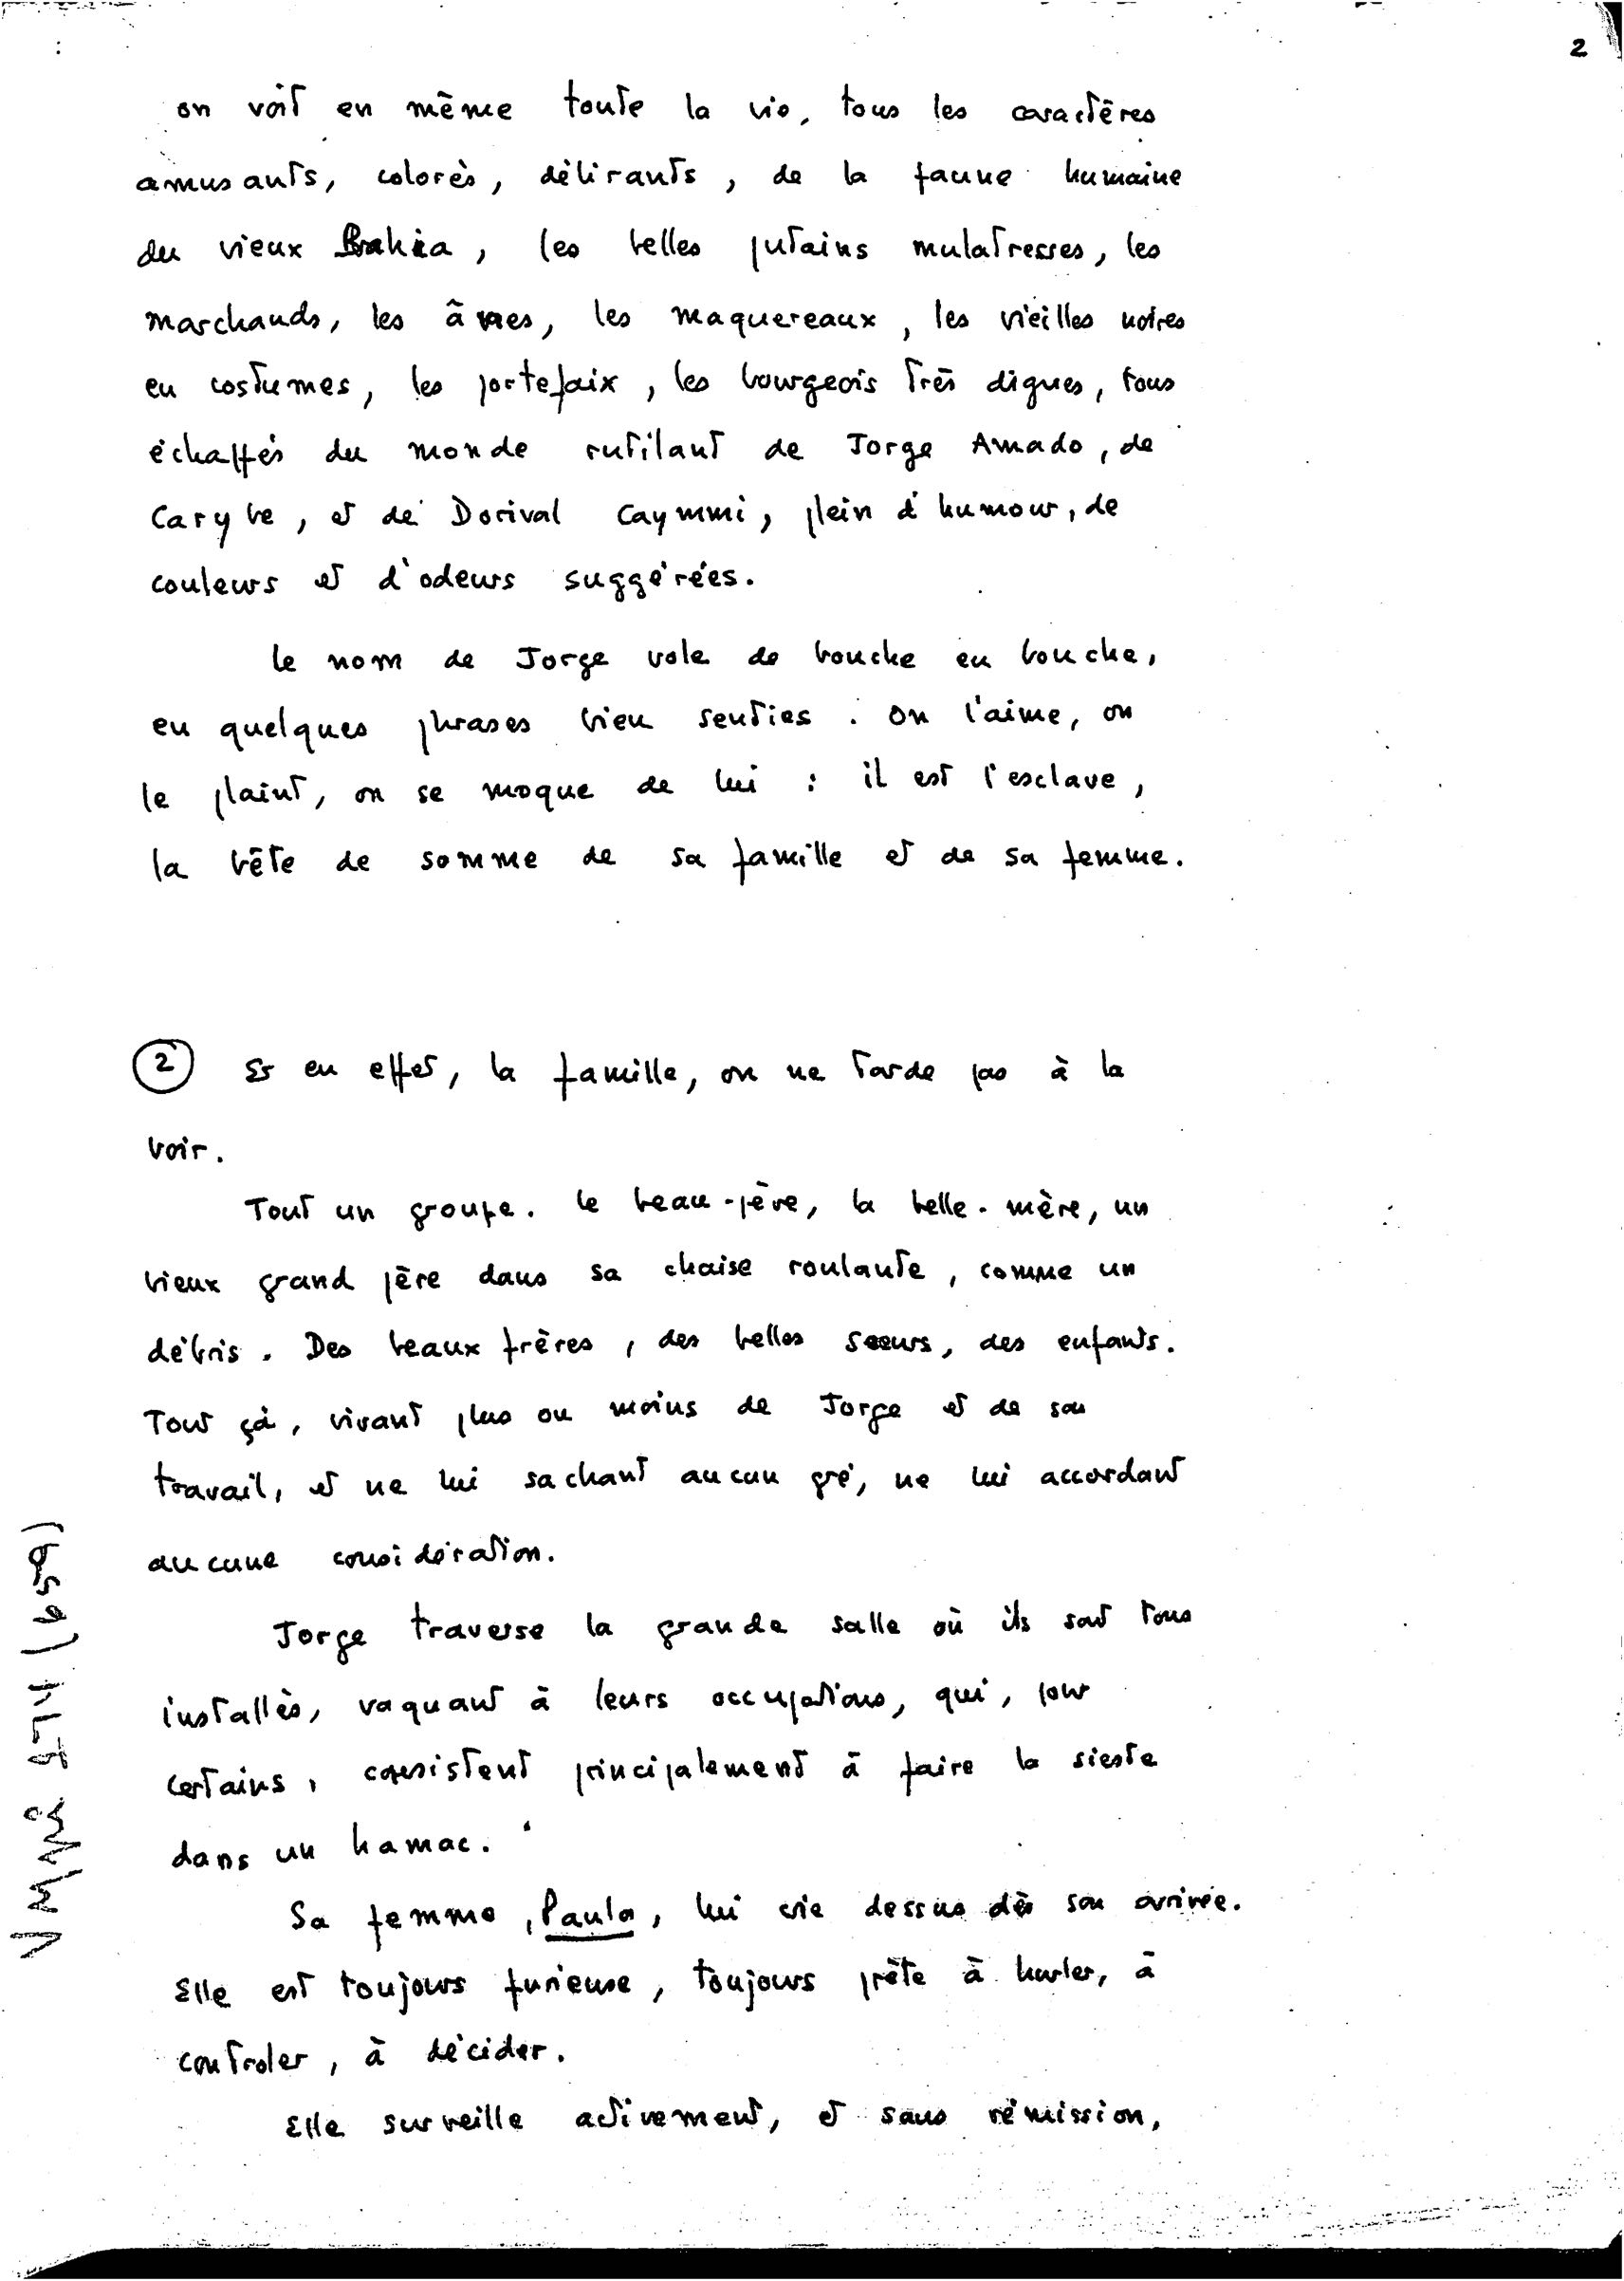 2
on voit en même toute la vie, tous les caractères
amusants, colorés, délirants, de la faune humaine
du vieux Bahia, les belles putains mulatresses, les
marchands, les ânes, les maquereaux, les vieilles noires
en costumes, les portefaix, les bourgeois très dignes, tous
échappés du monde rutilant de Jorge Amado, de
Carybe, et de Dorival Caymmi, plein d'humour, de
couleurs et d'odeurs suggérées.
Le nom de Jorge vole de bouche en bouche,
en quelques phrases bien senties. On l'aime, on
le plaint, on se moque de lui : il est l'esclave,
la bête de somme de sa famille et de sa femme.
2 Et en effet, la famille, on ne tarde pas à la
voir.
Tout un groupe. Le beau-père, la belle-mère, un
vieux grand père dans sa chaise roulante, comme un
débris. Des beaux frères, des belles soeurs, des enfants.
Tout çà, vivant plus ou moins de Jorge et de son
travail, et ne lui sachant aucun gré, ne lui accordant
aucune considération.
Jorge traverse la grande salle où ils sont tous
installés, vaquant à leurs occupations, qui, pour
certains, consistent principalement à faire la sieste
dans un hamac.
Sa femme, Paula, lui crie dessus dès son arrivée.
Elle est toujours furieuse, toujours prête à hurler, à
controler, à décider.
Elle surveille activement, et sans rémission,